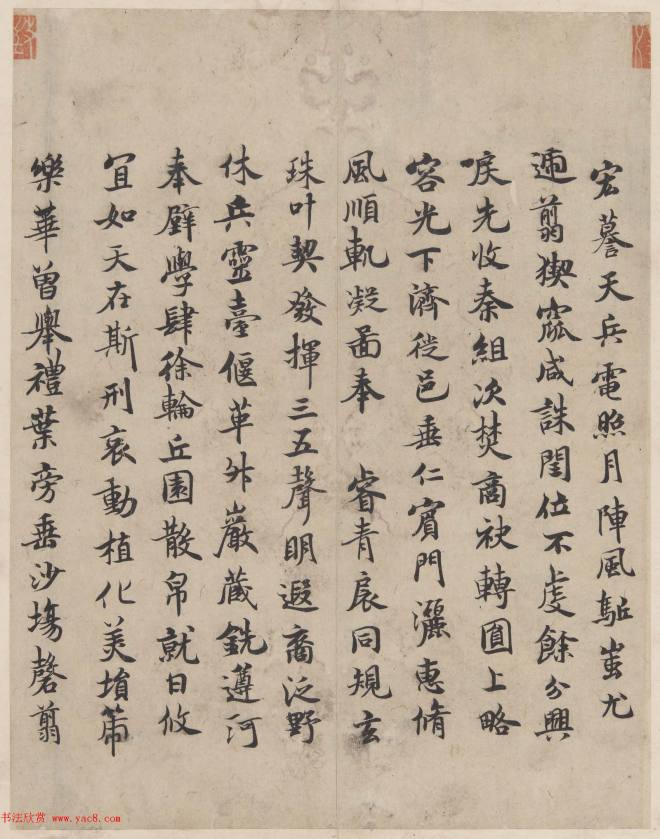 宏謩天兵電照月陣風駈蚩尤
遄翦猰窳咸誅閏位不虔餘分興
唳先收秦組次焚商袂轉圓上略
容光下濟徙邑垂仁賓門灑惠脩
風順軌凝圖奉 睿青扆同規玄
珠叶契發揮三五聲明遐裔泛野
休兵靈臺偃革舛巖蔵銑遵河
奉璧學肆徐輪丘園散帛就日攸
宜如天在斯刑哀動植化美堉蒂
樂華曽舉禮葉旁垂沙塲罄翦
书法欣赏 www.yac8.com